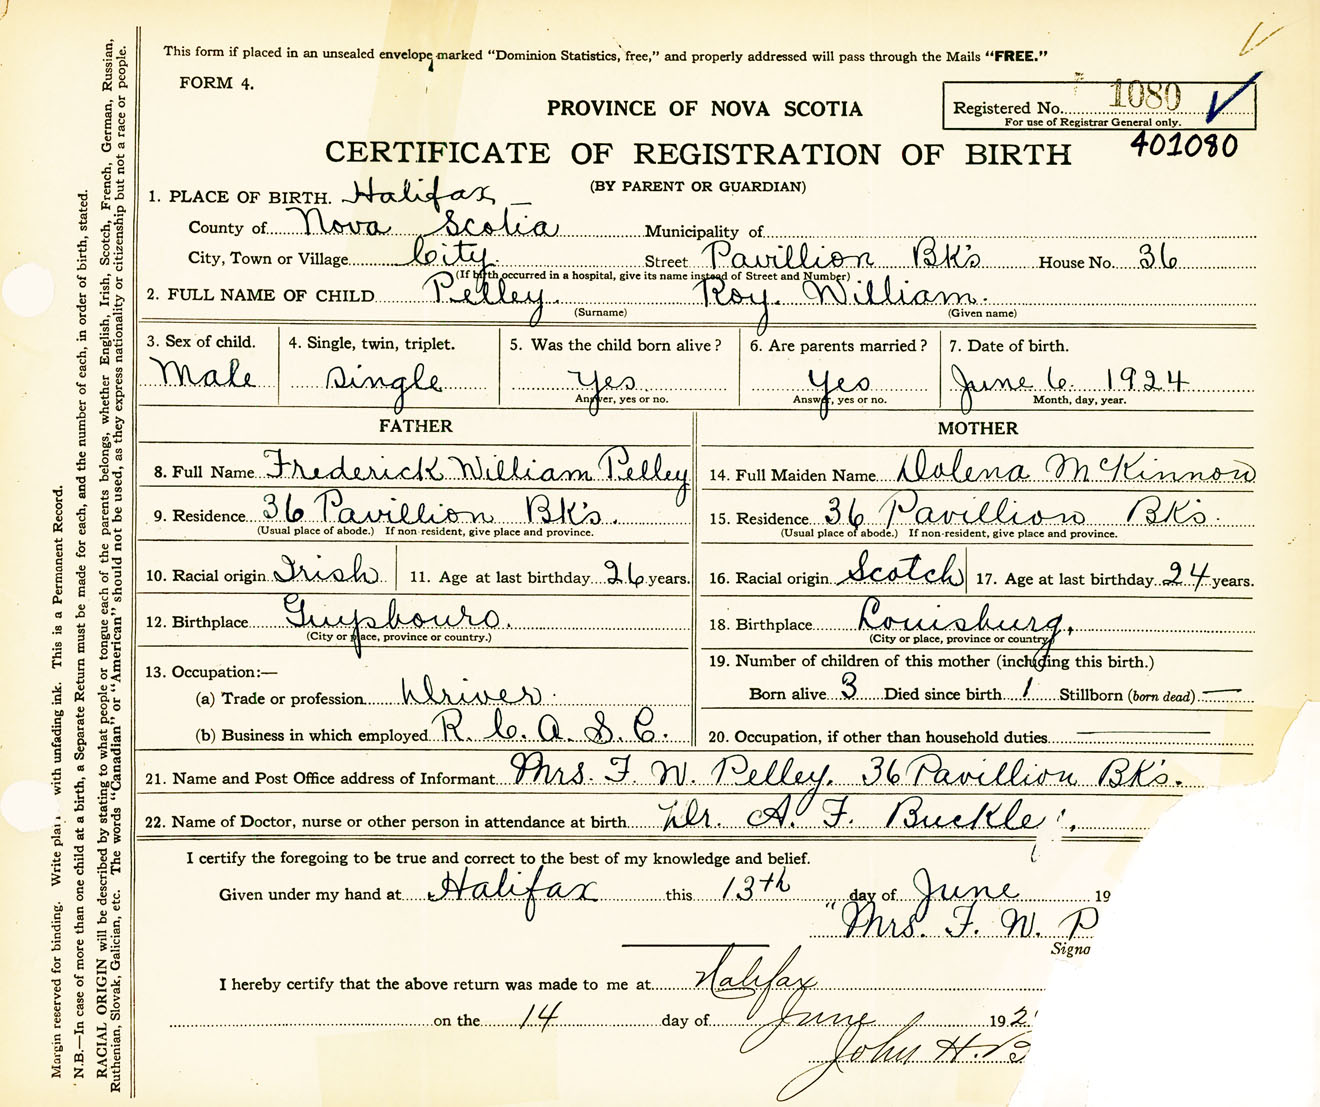 This form if placed in an unsealed envelope marked "Dominion Statistics, free," and properly addressed will pass through the Mails "FREE."
FORM 4.
PROVINCE OF NOVA SCOTIA
Registered No. 1080
For use of Registrar General only.
401080
CERTIFICATE OF REGISTRATION OF BIRTH
(BY PARENT OR GUARDIAN)
1. PLACE OF BIRTH. Halifax
County of Nova Scotia Municipality of
City, Town or Village City Street Pavillion BK's House No. 36
(If birth occurred in a hospital, give its name instead of Street and Number)
2. FULL NAME OF CHILD Pelley. Roy. William.
(Surname) (Given name)
3. Sex of child. 4. Single, twin, triplet. 5. Was the child born alive? 6. Are parents married? 7. Date of birth.
Male Single Yes Yes June 6. 1924
Answer, yes or no. Answer, yes or no. Month, day, year.
FATHER MOTHER
8. Full Name Frederick William Pelley 14. Full Maiden Name Dolena McKinnon
9. Residence 36 Pavillion BK's. 15. Residence 36 Pavillion BK's.
(Usual place of abode.) If non-resident, give place and province. (Usual place of abode.) If non-resident, give place and province.
10. Racial origin Irish 11. Age at last birthday 26 years. 16. Racial origin Scotch 17. Age at last birthday 24 years.
12. Birthplace Guysbouro. 18. Birthplace Louisburg,
(City or place, province or country.) (City or place, province or country)
13. Occupation:— 19. Number of children of this mother (including this birth.)
(a) Trade or profession Driver. Born alive 3 Died since birth 1 Stillborn (born dead) —
(b) Business in which employed R. C. A. S. C. 20. Occupation, if other than household duties
21. Name and Post Office address of Informant Mrs. F. W. Pelley. 36 Pavillion BK's.
22. Name of Doctor, nurse or other person in attendance at birth Dr. A. F. Buckle
I certify the foregoing to be true and correct to the best of my knowledge and belief.
Given under my hand at Halifax this 13th day of June 19
"Mrs. F. W. P
Signa
I hereby certify that the above return was made to me at Halifax
on the 14 day of June 192
John H.
Margin reserved for binding. Write with unfading ink. This is a Permanent Record.
N.B.—In case of more than one child at a birth, a Separate Return must be made for each, and the number of each, in order of birth, stated.
RACIAL ORIGIN will be described by stating to what people or tongue each of the parents belongs, whether English, Irish, Scotch, French, German, Russian,
Ruthenian, Slovak, Galician, etc. The words "Canadian" or "American" should not be used, as they express nationality or citizenship but not a race or people.